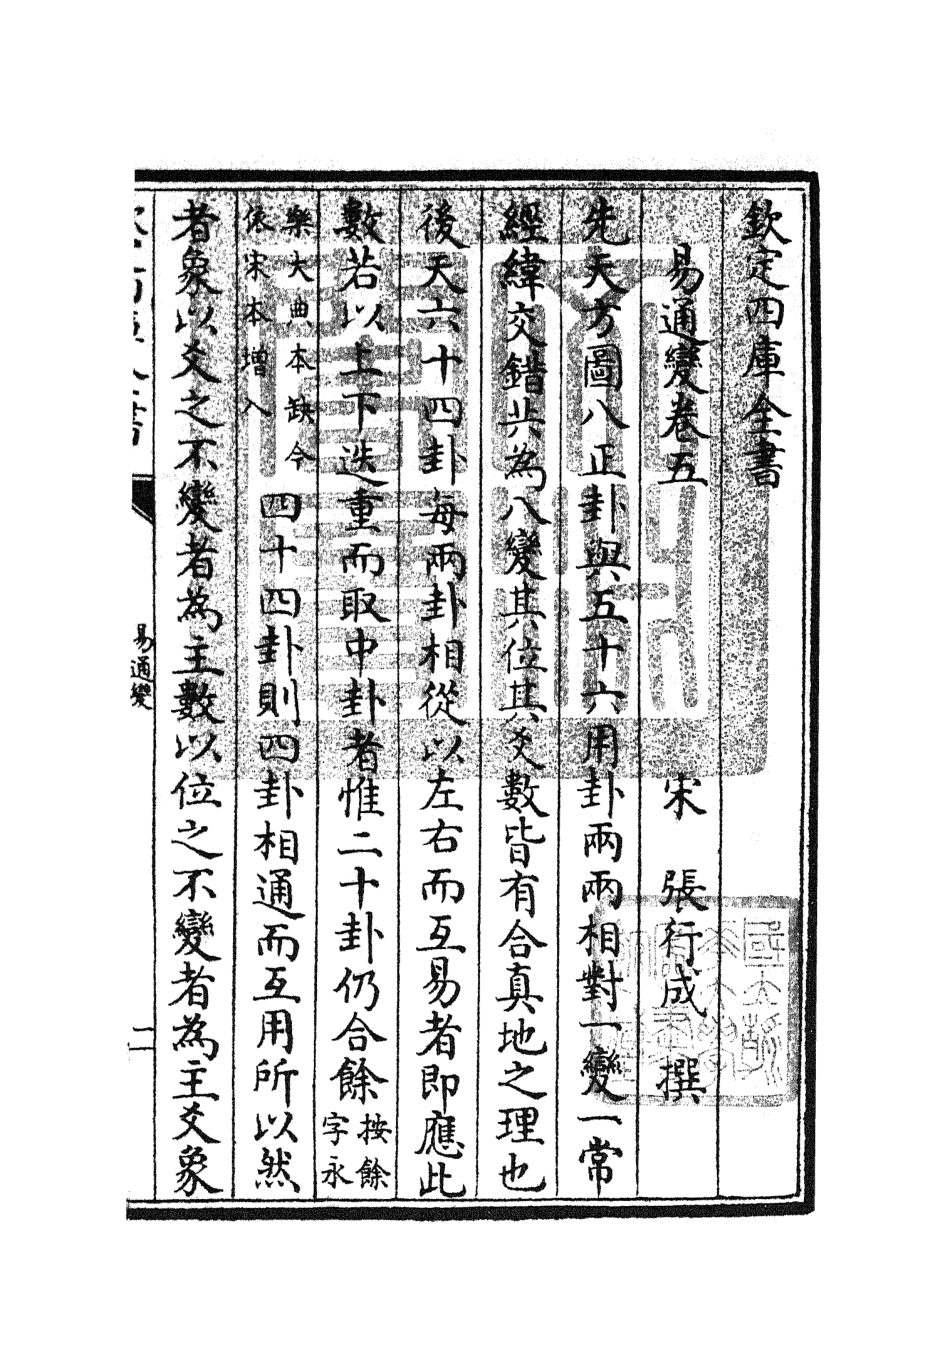 欽定四庫全書
易通變卷五
宋 張行成 撰
先天方圖八正卦與五十六用卦兩兩相對一變一常
經緯交錯共為八變其位其爻數皆有合真地之理也
後天六十四卦每兩卦相從以左右而互易者即應此
數若以上下迭重而取中卦者惟二十卦仍合餘
按餘
字永
樂大典本缺今
依宋本增入
四十四卦則四卦相通而互用所以然
者象以爻之不變者為主數以位之不變者為主爻象
易通變